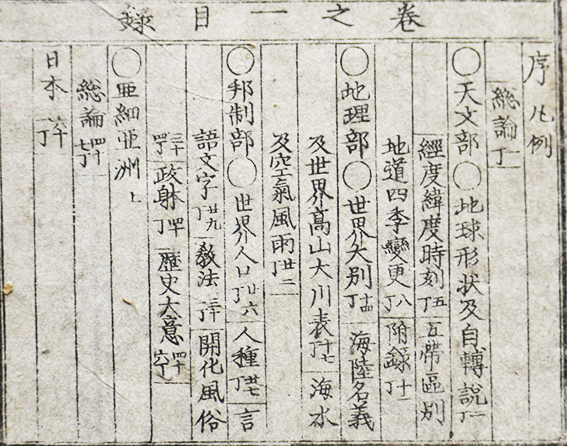 卷之一目錄
序 凡例
總論 一丁
○天文部 ○地球形狀及自轉說 一丁
經度緯度時刻 五丁 五帶區別
地道四季變更 八丁 附錄 十一丁
○地理部 ○世界大別 十四丁 海陸名義
及世界高山大川表 十七丁 海水
及空氣風雨 廿二丁
○邦制部 ○世界人口 廿六丁 人種 廿七丁 言
語文字 廿九丁 敎法 三十丁 開化風俗
三十四丁 政躰 丁 歷史大意 四十六丁
○亞細亞洲 上
總論 四十七丁
日本 六十丁